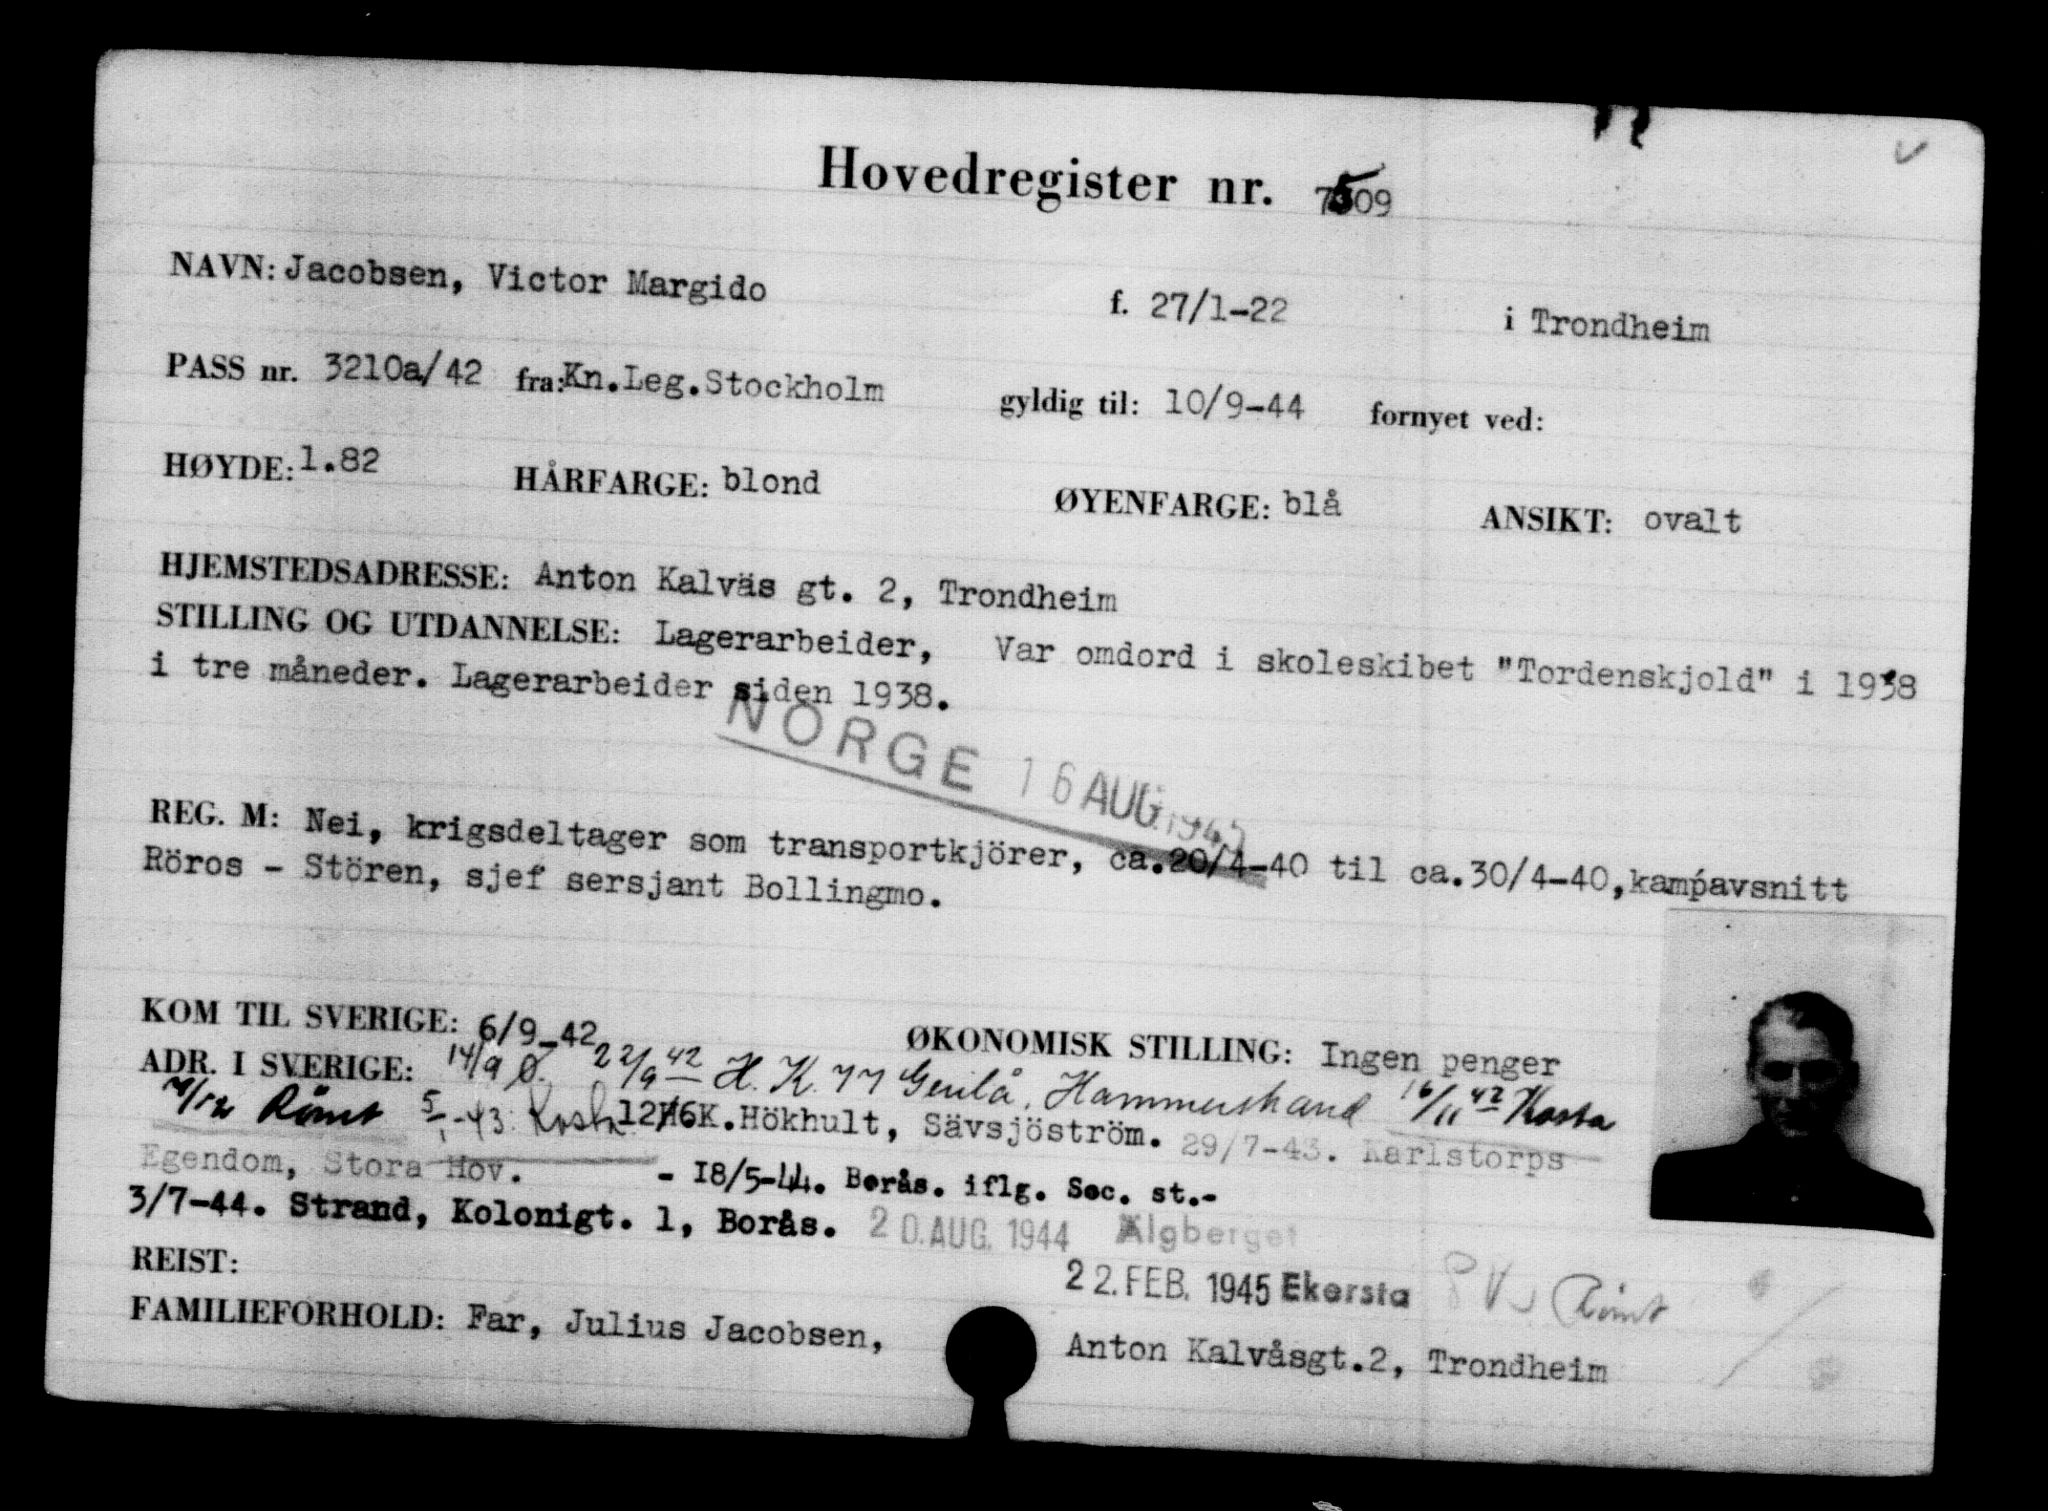 Hovedregister nr. 7509
NAVN: Jacobsen, Victor Margido f. 27/1-22 i Trondheim
PASS nr. 3210a/42 fra: Kn.Leg.Stockholm gyldig til: 10/9-44 fornyet ved:
HØYDE: 1.82 HÅRFARGE: blond ØYENFARGE: blå ANSIKT: ovalt
HJEMSTEDSADRESSE: Anton Kalväs gt. 2, Trondheim
STILLING OG UTDANNELSE: Lagerarbeider, Var omdord i skoleskibet "Tordenskjold" i 1938
i tre måneder. Lagerarbeider siden 1938.
NORGE 16 AUG. 1945
REG. M: Nei, krigsdeltager som transportkjörer, ca.20/4-40 til ca.30/4-40, kampavsnitt
Röros - Stören, sjef sersjant Bollingmo.
KOM TIL SVERIGE: 6/9-42 ØKONOMISK STILLING: Ingen penger
ADR. I SVERIGE: 14/9 Ø. 22/9 42 H. K. 77 Hammerstrand 16/11 42 Kosta
Römt 5/1-43. Kosta 12/6 K. Hökhult, Sävsjöström. 29/7-43. Karlstorps
Egendom, Stora Hov. - 18/5-44. Borås. iflg. Soc. st.-
3/7-44. Strand, Kolonigt. 1, Borås. 20. AUG. 1944 Älgberget
REIST: 22. FEB. 1945 Ekersta Römt
FAMILIEFORHOLD: Far, Julius Jacobsen, Anton Kalvåsgt.2, Trondheim